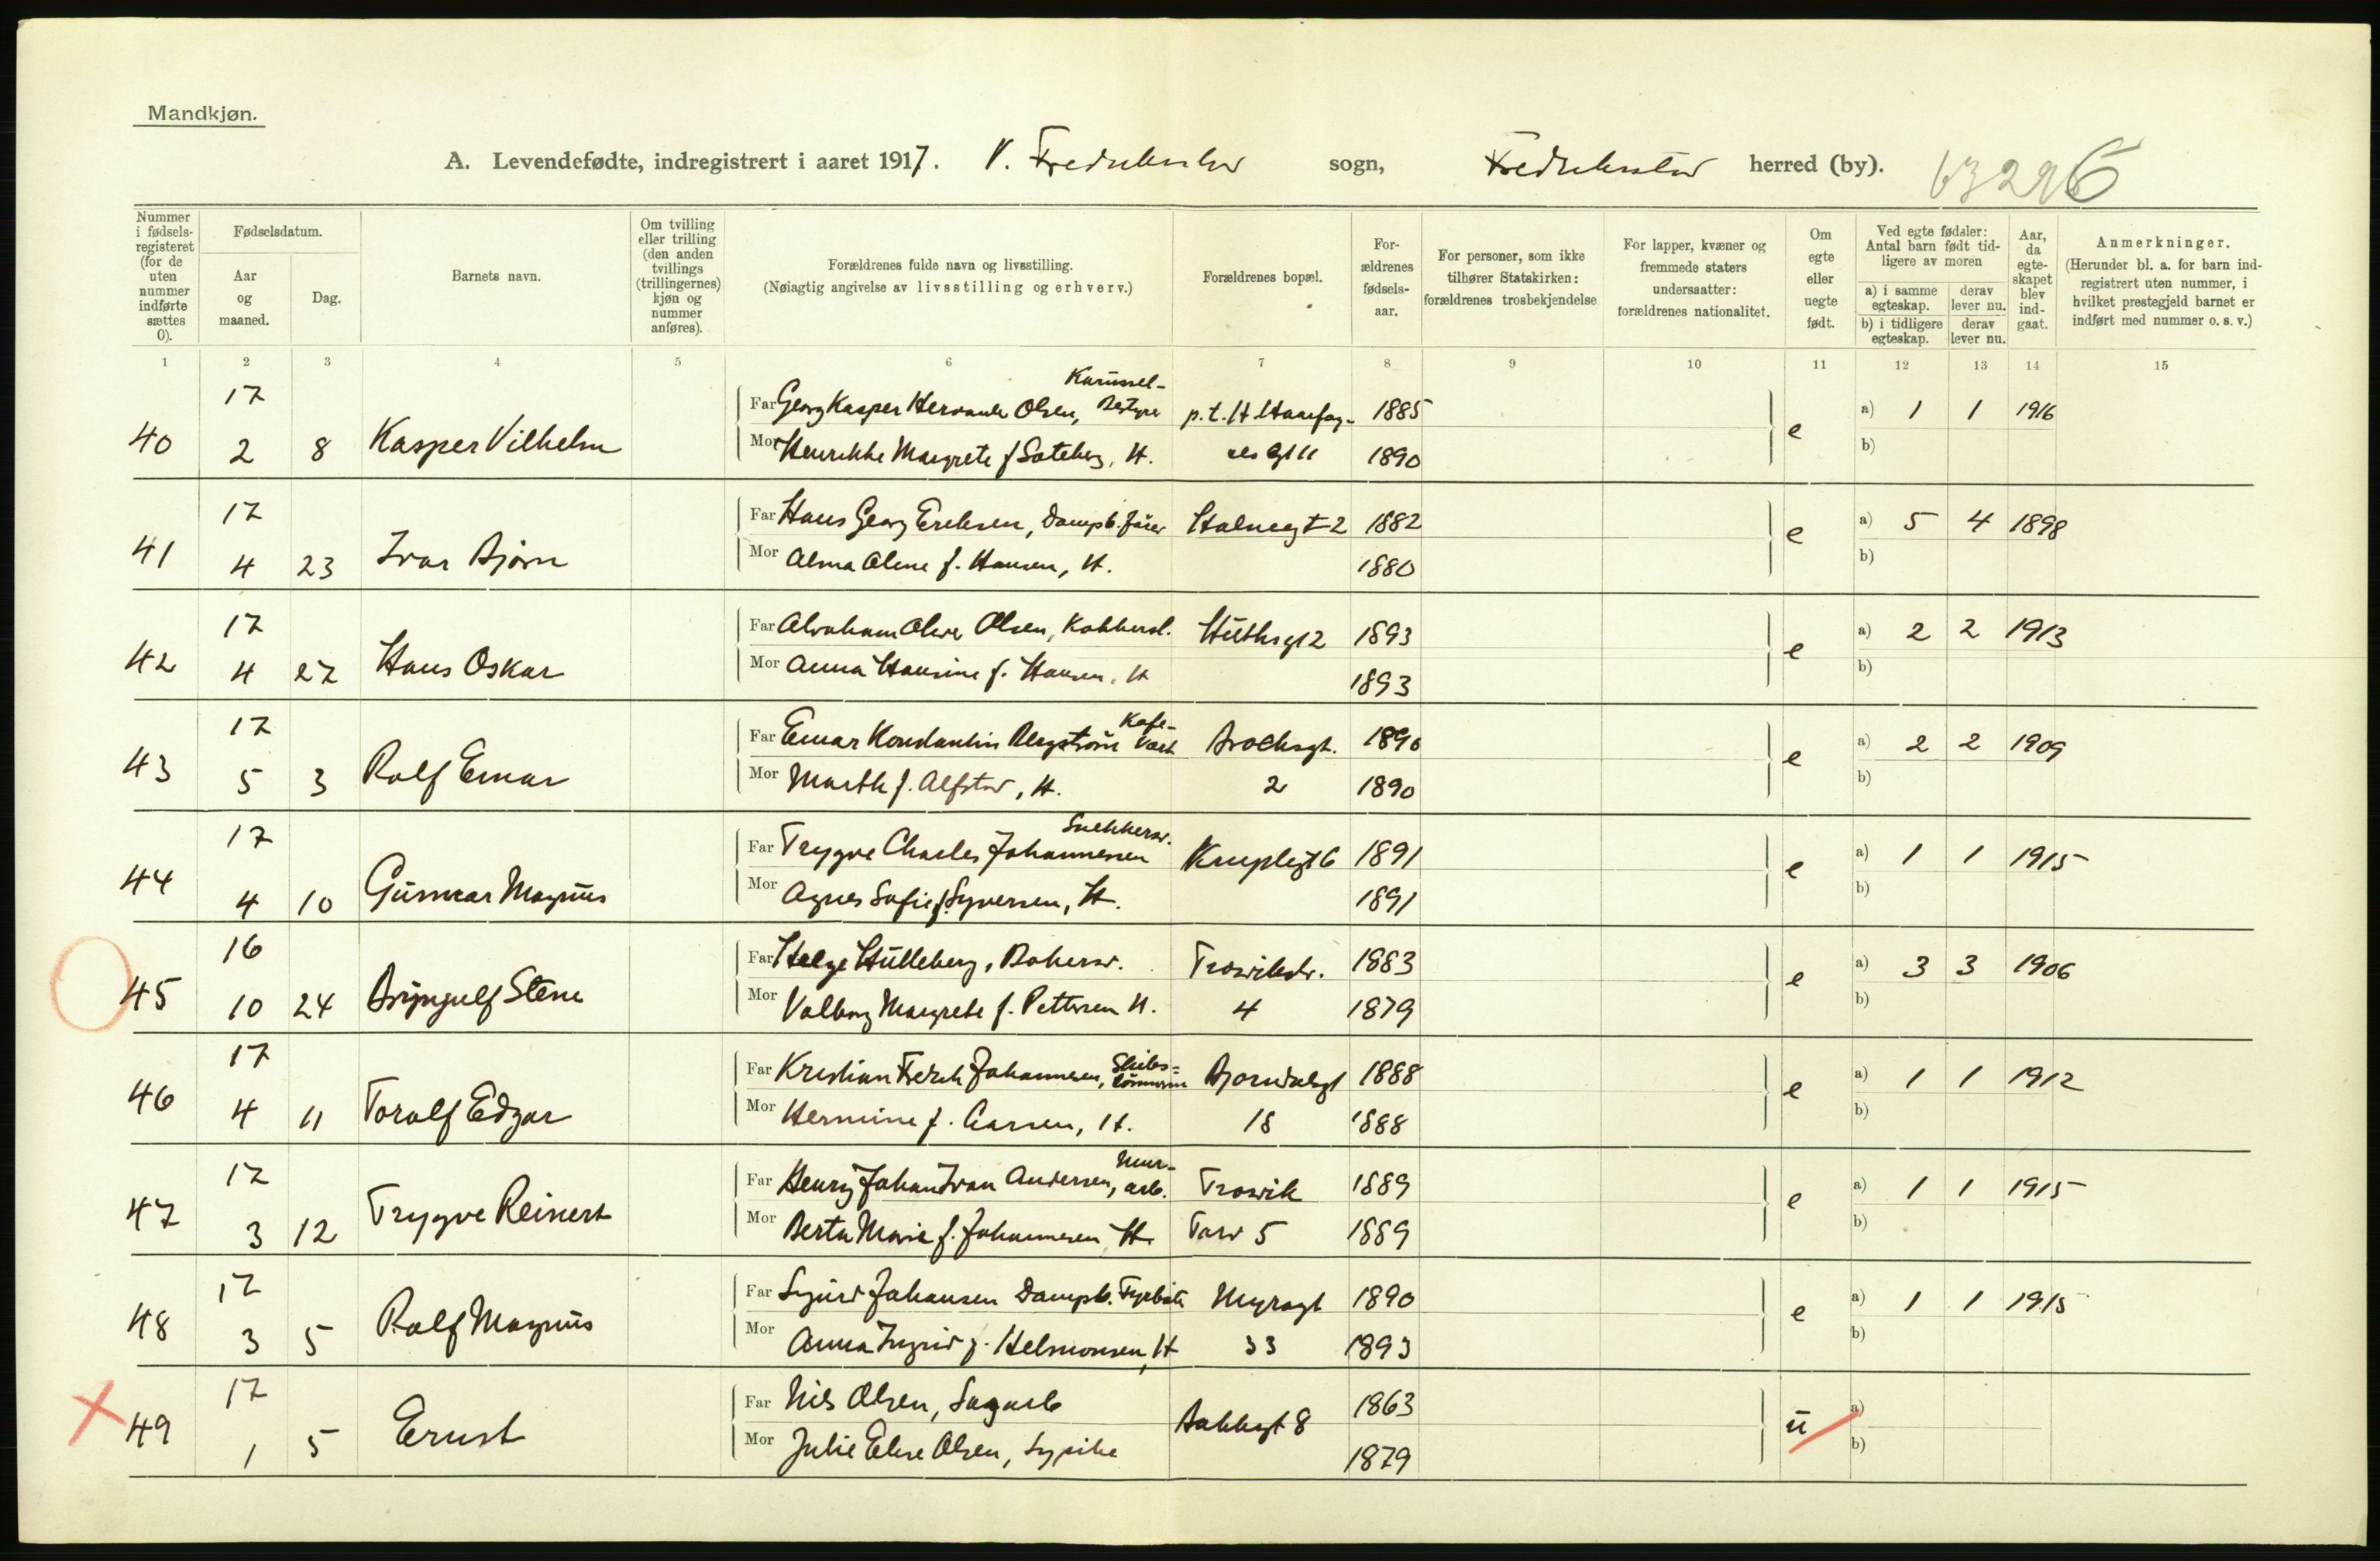 Mandkjøn.
A. Levendefødte, indregistrert i aaret 1917. V. Fredrikstad sogn, Fredrikstad herred (by). 63296
Nummer i fødselsregisteret (for de uten nummer indførte sættes 0).
Fødselsdatum.
Aar og maaned.
Dag.
Barnets navn.
Om tvilling eller trilling (den anden tvillings (trillingernes) kjøn og nummer anføres).
Forældrenes fulde navn og livsstilling.
(Nøiagtig angivelse av livsstilling og erhverv.)
Forældrenes bopæl.
Forældrenes fødselsaar.
For personer, som ikke tilhører Statskirken: forældrenes trosbekjendelse
For lapper, kvæner og fremmede staters undersaatter: forældrenes nationalitet.
Om egte eller uegte født.
Ved egte fødsler: Antal barn født tidligere av moren
a) i samme egteskap. derav lever nu.
b) i tidligere egteskap. derav lever nu.
Aar, da egteskapet blev indgaat.
Anmerkninger.
(Herunder bl. a. for barn indregistrert uten nummer, i hvilket prestegjeld barnet er indført med nummer o. s. v.)
1 2 3 4 5 6 7 8 9 10 11 12 13 14 15
17 Karussel-
Far Georg Kasper Olsen, Bestyrer p.t. H. 1885 a) 1 1 1916
40 2 8 Kasper Vilhelm e
Mor Henrikke Margrete f. H. 11 1890 b)
17 Far Hans Georg Eriksen, Dampb.fører 2 1882 a) 5 4 1898
41 4 23 Ivar Bjørn e
Mor Alma Oline f. Hansen, H. 1880 b)
17 Far Olsen, Kobbersl. Huthsgt 2 1893 a) 2 2 1913
42 4 27 Hans Oskar e
Mor Anna Hansine f. Hansen, H 1893 b)
17 Kafe-
Far Einar Konstantin Bergstrøm Vært Brochsgt. 1890 a) 2 2 1909
43 5 3 Rolf Einar e
Mor Marth f. Alfstad, H. 2 1890 b)
17 Snekkersv.
Far Trygve Charles Johannessen 6 1891 a) 1 1 1915
44 4 10 Gunnar Magnus e
Mor Agnes Sofie f. Syversen, H. 1891 b)
16 Far Helge Hulleberg, Bakersv. Trosvikstr. 1883 a) 3 3 1906
45 10 24 Brynjulf Stene e
Mor Valborg Margrete f. Pettersen H. 4 1879 b)
17 Skibs-
Far Kristian Fredrik Johannesen, tømmerm Bjørndalsgt 1888 a) 1 1 1912
46 4 11 Toralf Edgar e
Mor Hermine f. Larsen, H. 18 1888 b)
17 Mur-
Far Henry Johan Ivan Andersen, arb. Trosvik 1889 a) 1 1 1915
47 3 12 Trygve Reinert e
Mor Berta Marie f. Johannesen H. 5 1889 b)
17 Far Sigurd Johansen Dampb. Fyrbøter Myragt 1890 a) 1 1 1915
48 3 5 Rolf Magnus e
Mor Anna Ingrid f. Helmonsen, H 33 1893 b)
17 Far Nils Olsen, Sagarb 1863 a)
49 1 5 Ernst Bakkegt 8 u
Mor Julie Elise Olsen, Sypike 1879 b)